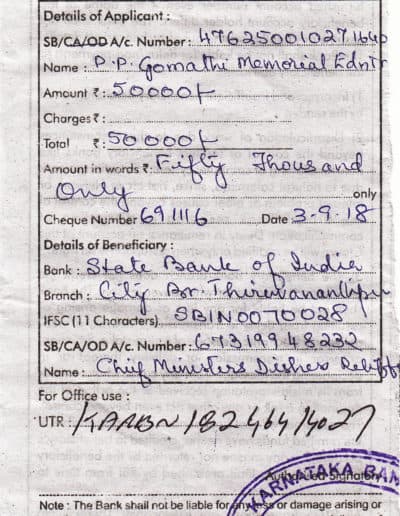 Details of Applicant :
SB/CA/OD A/c. Number : 476250010271640
Name : P.P. Gomathi Memorial Edntr
Amount ₹ : 50000/-
Charges ₹ :
Total ₹ : 50000/-
Amount in words ₹ Fifty Thousand
Only only
Cheque Number 691116 Date 3-9-18
Details of Beneficiary :
Bank : State Bank of India
Branch : City Br. Thiruvananthpu
IFSC (11 Characters) SBIN0070028
SB/CA/OD A/c. Number : 67319948232
Name : Chief Ministers Distress Relief
For Office use :
UTR : KARBN18246414027
Authorised Signatory
KARNATAKA BAN
Note : The Bank shall not be liable for any loss or damage arising or